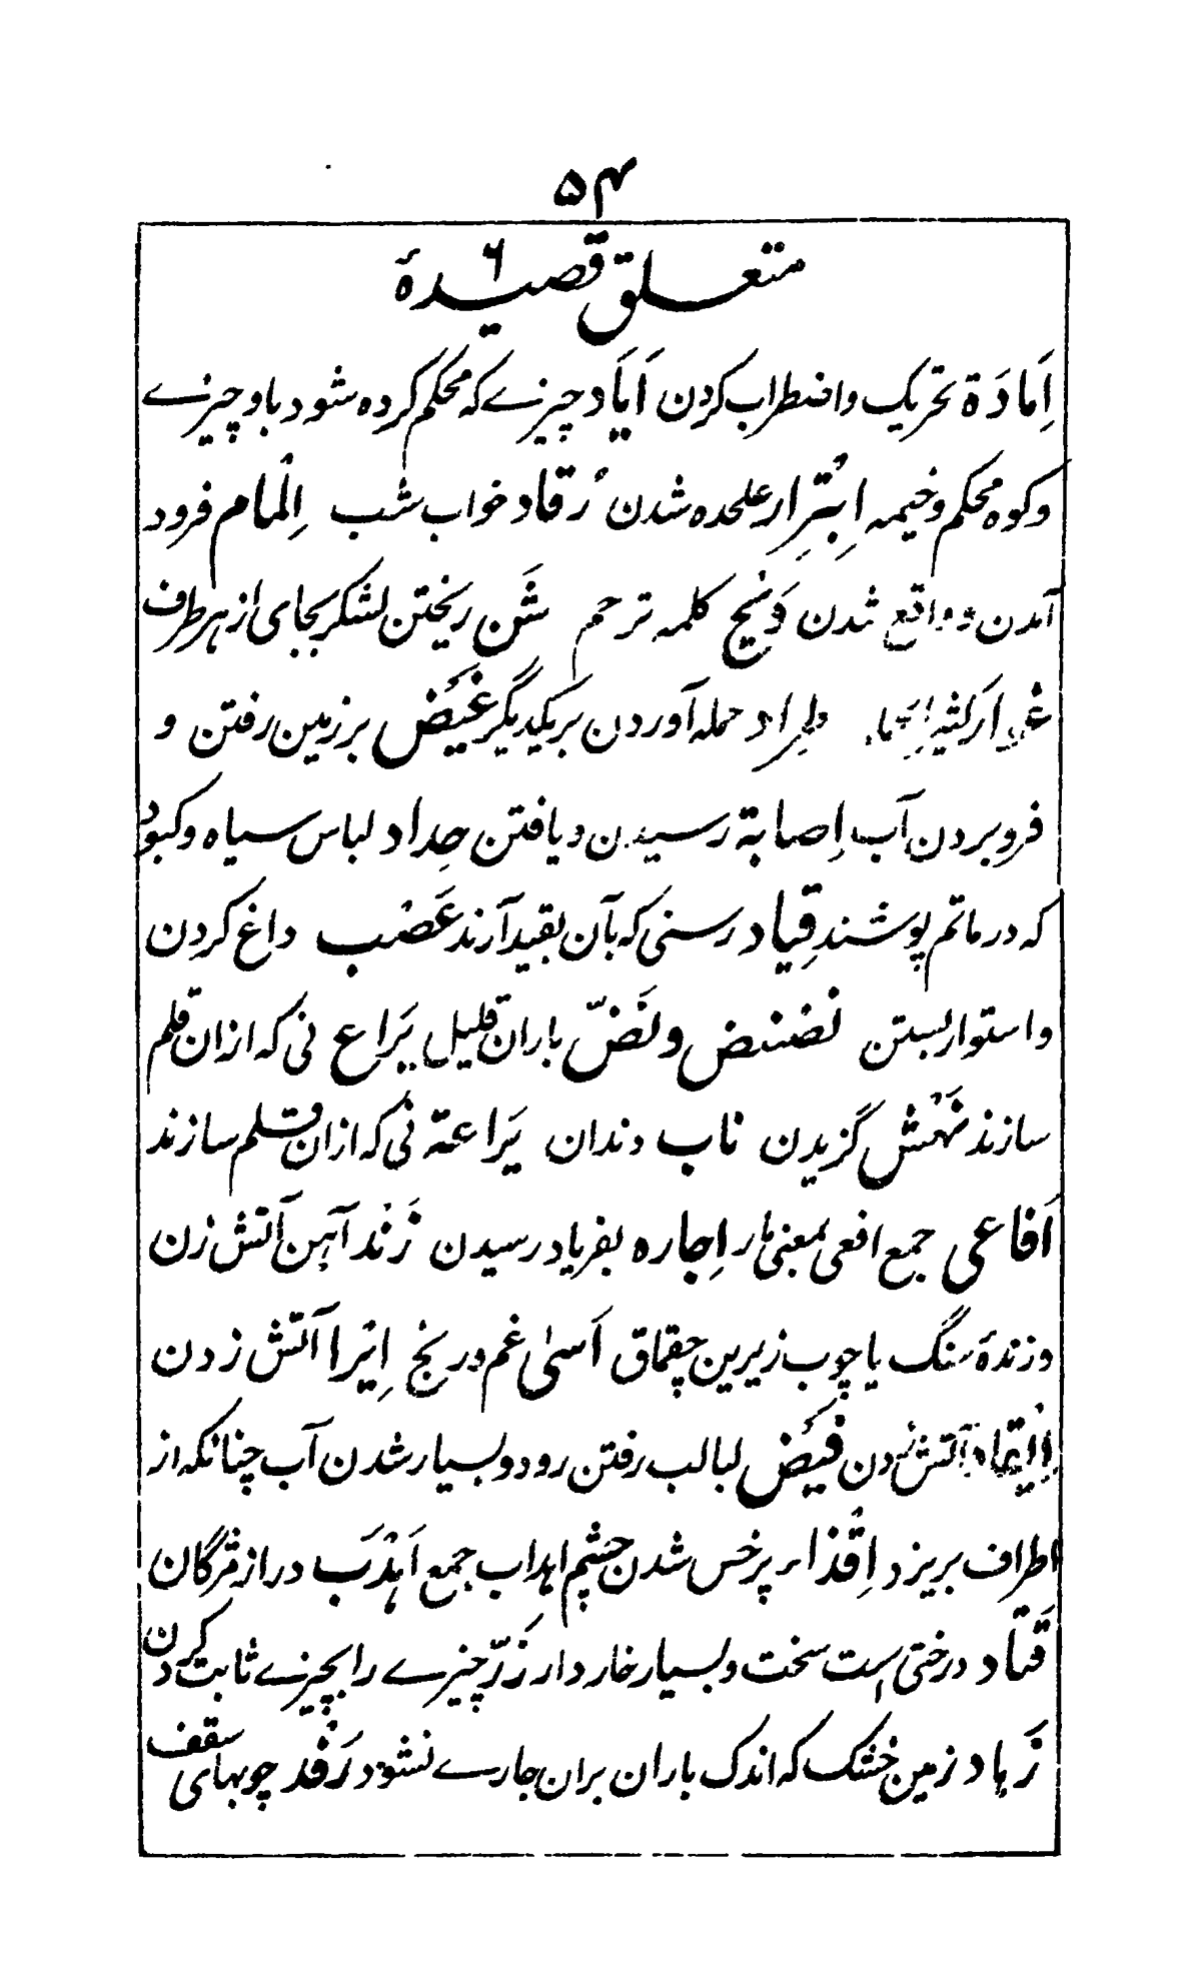 ۵۴
متعلق قصیدۂ ۶
اِمَادَة تحریک واضطراب کردن اَیَاد چیزے که محکم کرده شود باو چیزے
وکوه محکم وخیمه اِبْتِرار علحده شدن رُقاد خواب شب اِلْمام فرود
آمدن وواقع شدن وَیْح کلمه ترحم شَن ریختن لشکر بجای از هر طرف
طِراد حمله آوردن بر یکدیگر غَیْض بر زمین رفتن و
فرو بردن آب اِصابة رسیدن ویافتن حِداد لباس سیاه وکبود
که در ماتم پوشند قِیاد رسنی که بآن بقید آرند عَضْب داغ کردن
واستوار بستن نضنض ونَضّ باران قلیل یَراع نی که ازان قلم
سازند نَهْش گزیدن ناب دندان یَراعة نی که ازان قلم سازند
اَفاعی جمع افعی بمعنی مار اِجاره بفریاد رسیدن زَنْد آهن آتش زن
وزندۂ سنگ یا چوب زیرین چقماق اَسیٰ غم ورنج اِیْرا آتش زدن
آتش زدن فَیْض لبالب رفتن رود وبسیار شدن آب چنانکه از
اطراف بریزد اِقْذاء پر خس شدن چشم اهداب جمع اَهْدَب دراز مژگان
قَتاد درختی است سخت وبسیار خاردار زَرّ چیزے را بچیزے ثابت کردن
زَهاد زمین خشک که اندک باران بران جارے نشود رَفْد چوبهای سقف